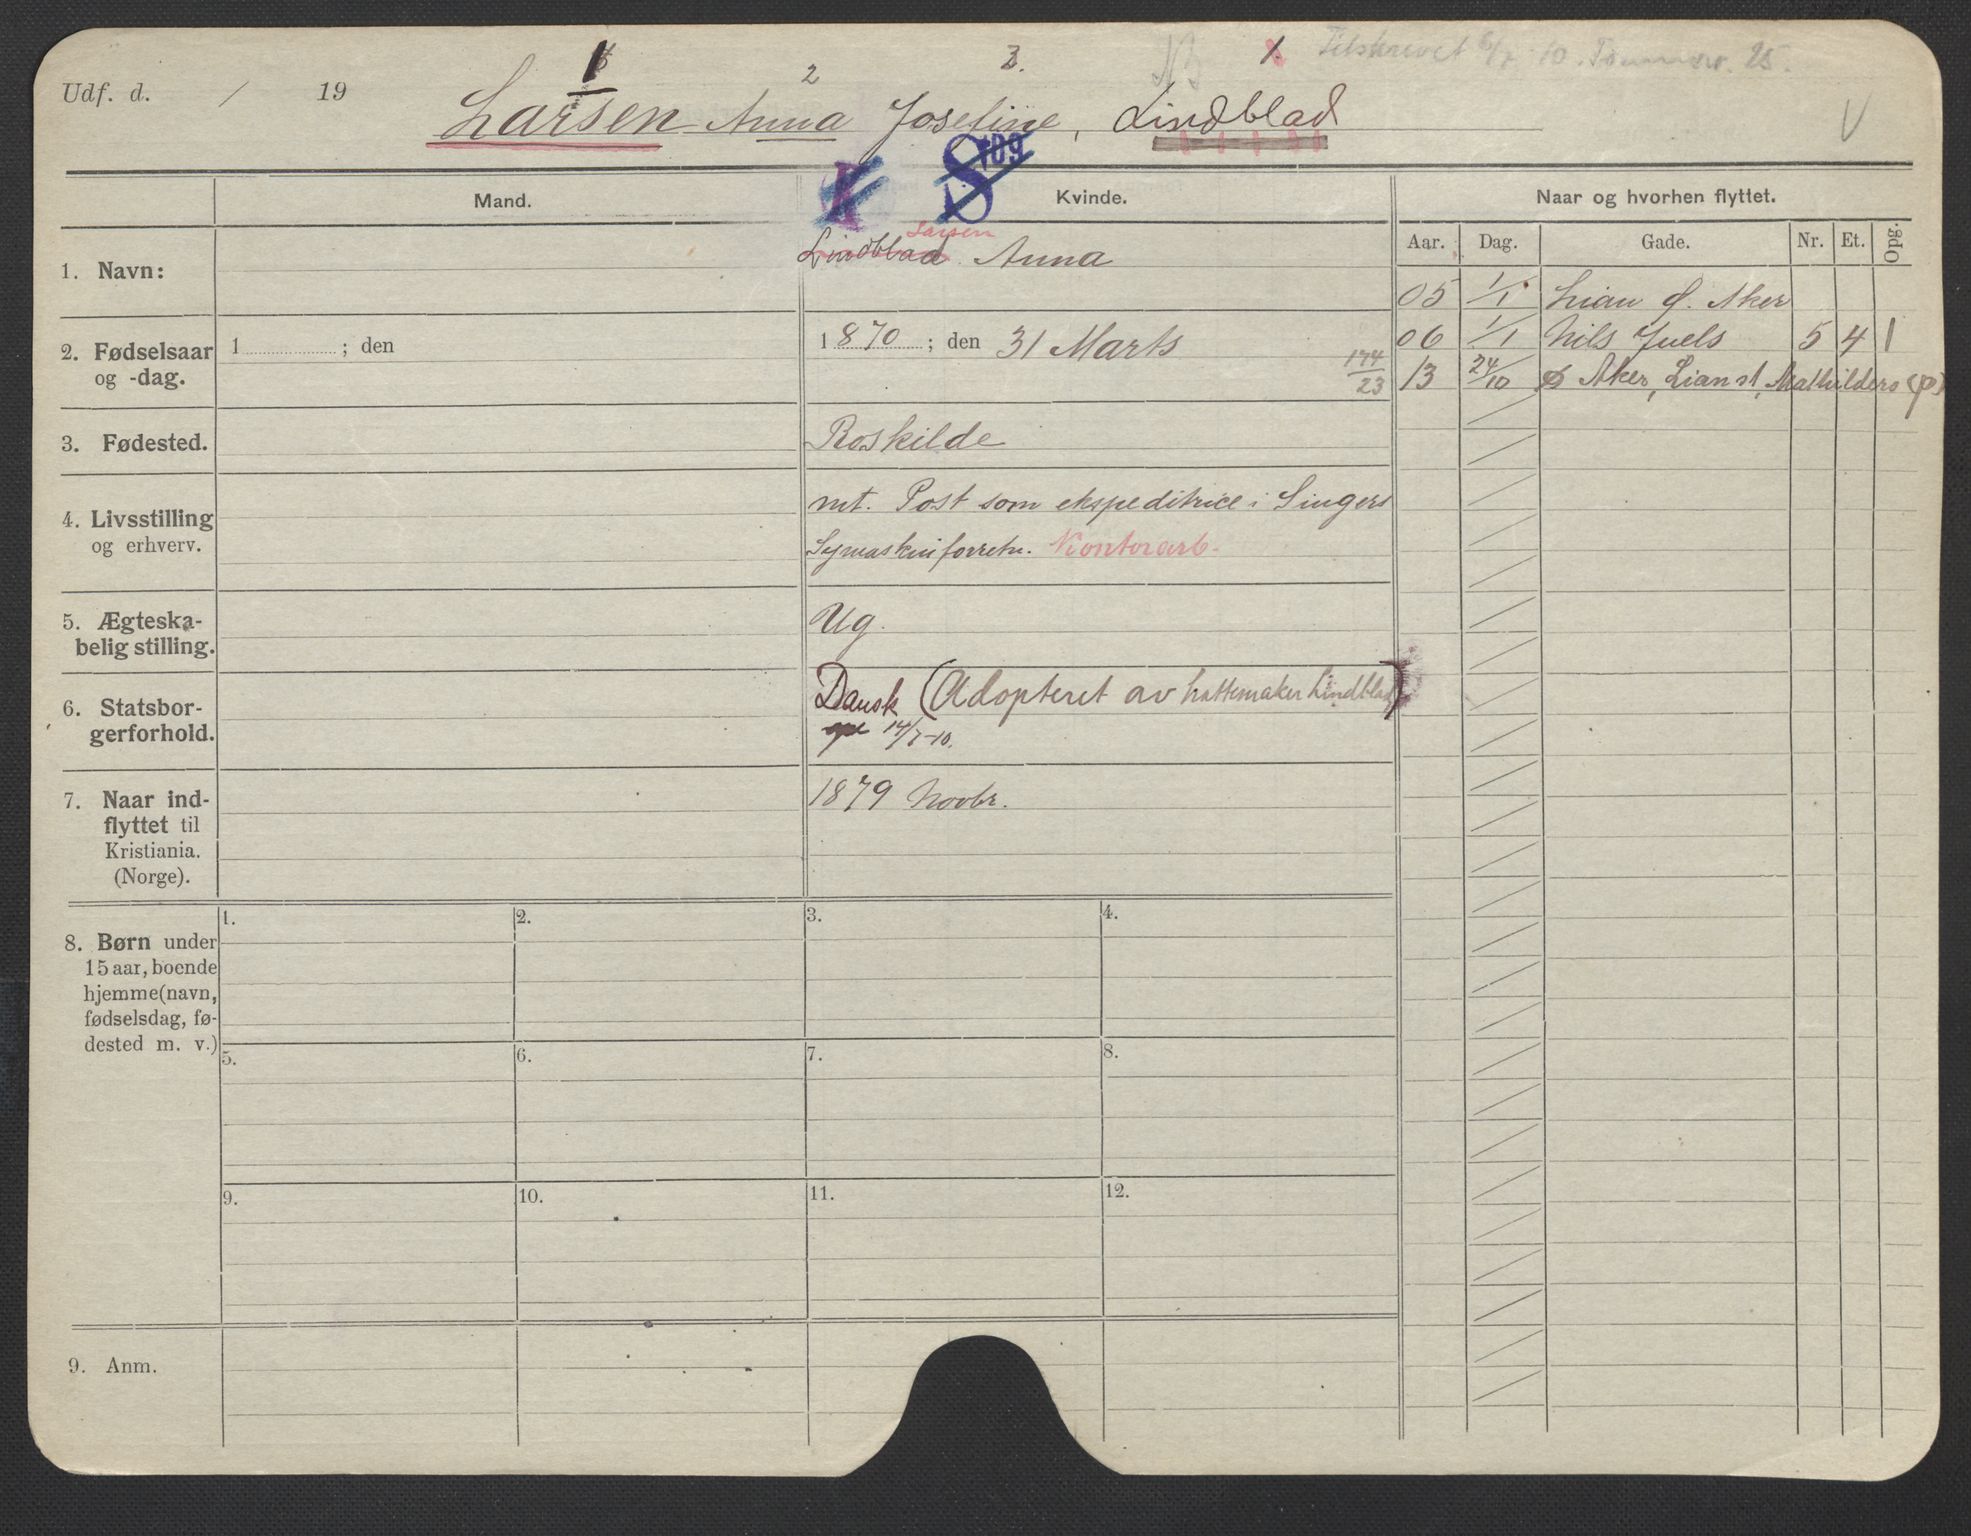 1 2 3. 1. Tilskrevet 6/7 10. Tømmerv. 25.
Udf. d. / 19 Larsen Anna Josefine, Lindblad V
K S 109
Mand. Kvinde. Naar og hvorhen flyttet.
Aar. Dag. Gade. Nr. Et. Opg.
1. Navn: Lindblad Larsen Anna
05 1/1 Lian Ø. Aker
2. Fødselsaar og -dag. 1 ; den 1870 ; den 31 Marts
174/23
06 1/1 Nils Juels 5 4 1
13 24/10 Ø Aker, Lian st, Mathilders (p)
3. Fødested. Roskilde
4. Livsstilling og erhverv. mt. Post som ekspeditrice i Singers
Symaskinforretn. Kontorarb.
5. Ægteska-
belig stilling. Ug.
6. Statsbor-
gerforhold. Dansk (Adopteret av hattemaker Lindblad)
14/7-10.
7. Naar ind-
flyttet til
Kristiania.
(Norge). 1879 Novbr.
8. Børn under
15 aar, boende
hjemme (navn,
fødselsdag, fø-
dested m. v.)
1. 2. 3. 4.
5. 6. 7. 8.
9. 10. 11. 12.
9. Anm.